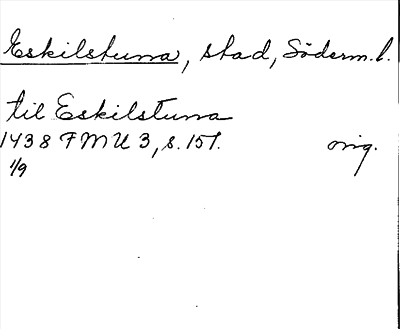 Eskilstuna, stad, Söderm.l.
til Eskilstuna
1438 FMU 3, s. 151. orig.
1/9